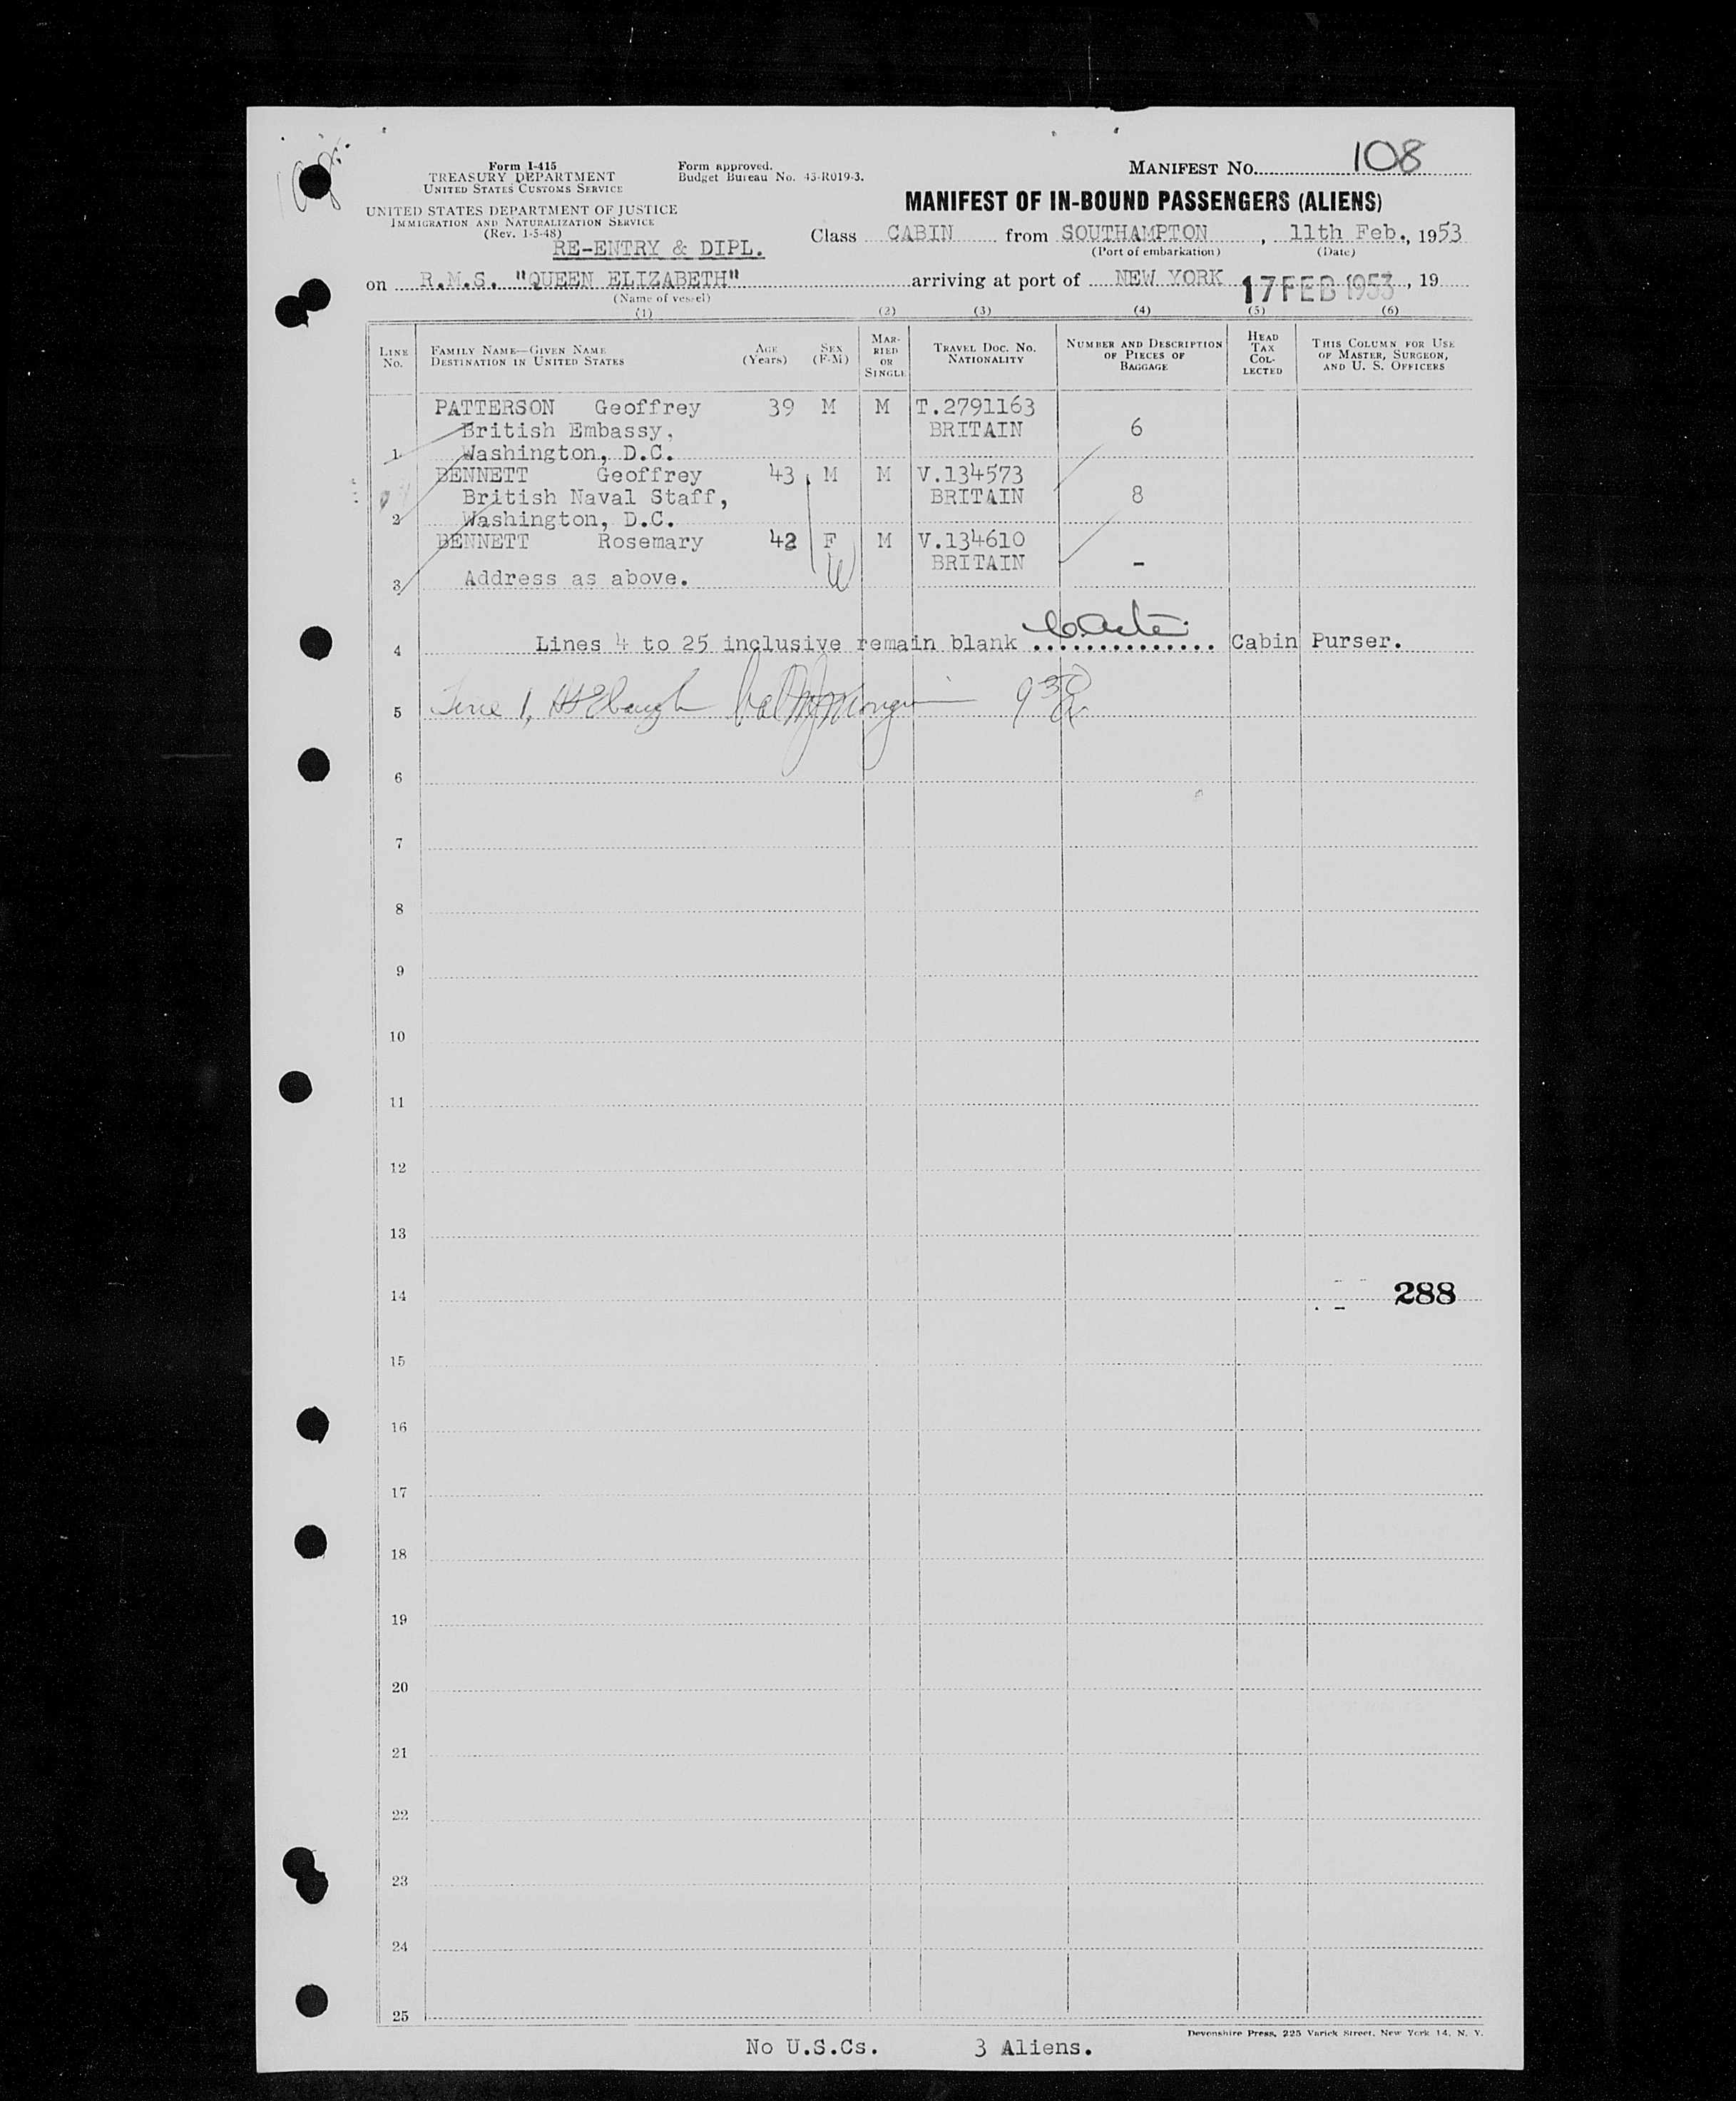 Form I-415
TREASURY DEPARTMENT
UNITED STATES CUSTOMS SERVICE
Form approved.
Budget Bureau No. 43-R019-3.
MANIFEST NO. 108
UNITED STATES DEPARTMENT OF JUSTICE
IMMIGRATION AND NATURALIZATION SERVICE
(Rev. 1-5-48)
RE-ENTRY & DIPL.
MANIFEST OF IN-BOUND PASSENGERS (ALIENS)
Class CABIN from SOUTHAMPTON, 11th Feb., 1953
(Port of embarkation) (Date)
on R.M.S. "QUEEN ELIZABETH" arriving at port of NEW YORK 17 FEB 1953, 19
(Name of vessel)
(1) (2) (3) (4) (5) (6)
LINE NO. FAMILY NAME—GIVEN NAME DESTINATION IN UNITED STATES AGE (Years) SEX (F-M) MARRIED OR SINGLE TRAVEL DOC. NO. NATIONALITY NUMBER AND DESCRIPTION OF PIECES OF BAGGAGE HEAD TAX COLLECTED THIS COLUMN FOR USE OF MASTER, SURGEON, AND U. S. OFFICERS
PATTERSON Geoffrey 39 M M T.2791163
British Embassy, BRITAIN 6
1 Washington, D.C.
BENNETT Geoffrey 43 M M V.134573
British Naval Staff, BRITAIN 8
2 Washington, D.C.
BENNETT Rosemary 42 F M V.134610
BRITAIN -
3 Address as above.
4 Lines 4 to 25 inclusive remain blank .............. Cabin Purser.
5 Line 1,
6
7
8
9
10
11
12
13
14 288
15
16
17
18
19
20
21
22
23
24
25
Devonshire Press, 225 Varick Street, New York 14, N. Y.
No U.S.Cs. 3 Aliens.